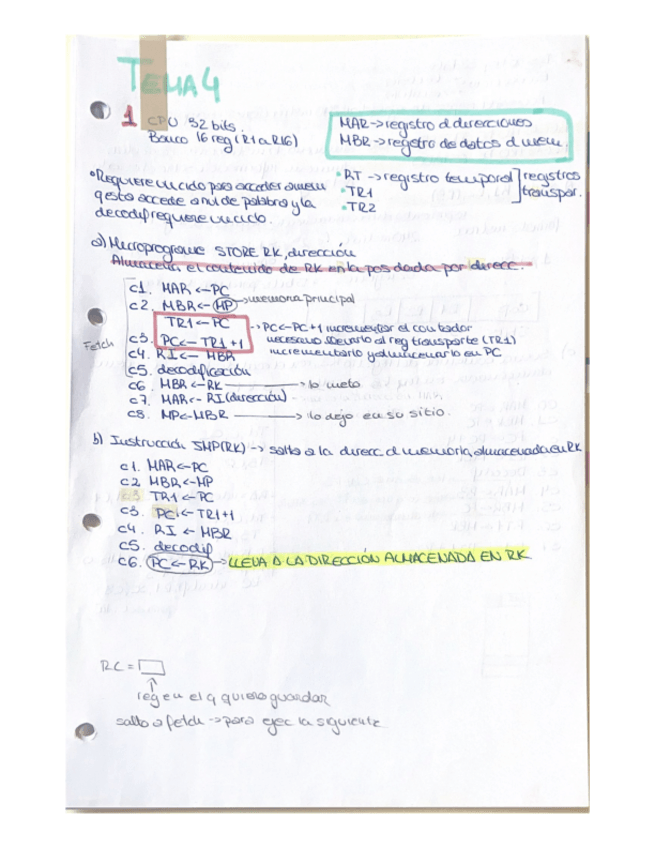 TEMA 4
1 CPU 32 bits.
Banco 16 reg (R1 a R16)
MAR → registro d direcciones
MBR → registro de datos d mem.
• Requiere un ciclo para acceder a mem
q esto accede a nivel de palabra y la
decodif requiere un ciclo.
• RT → registro temporal
• TR1
• TR2
registros
transpor.
a) Microprograma STORE RK, dirección
Almacena el contenido de RK en la pos dada por direcc.
Fetch
c1. MAR ← PC
c2. MBR ← MP → memoria principal
TR1 ← PC
c3. PC ← TR1 + 1
→ PC ← PC + 1 incrementar el contador
necesario llevarlo al reg transporte (TR1)
incrementarlo y almacenarlo en PC
c4. RI ← MBR
c5. decodificación
c6. MBR ← RK → lo meto
c7. MAR ← RI (dirección)
c8. MP ← MBR → lo dejo en su sitio.
b) Instrucción JMP (RK) → salto a la direcc d memoria almacenada en RK
c1. MAR ← PC
c2 MBR ← MP
c3 TR1 ← PC
c3. PC ← TR1 + 1
c4. RI ← MBR
c5. decodif
c6. PC ← RK → LLEVA A LA DIRECCIÓN ALMACENADA EN RK
RC =
reg en el q quiero guardar
salto a fetch → para ejec la siguiente